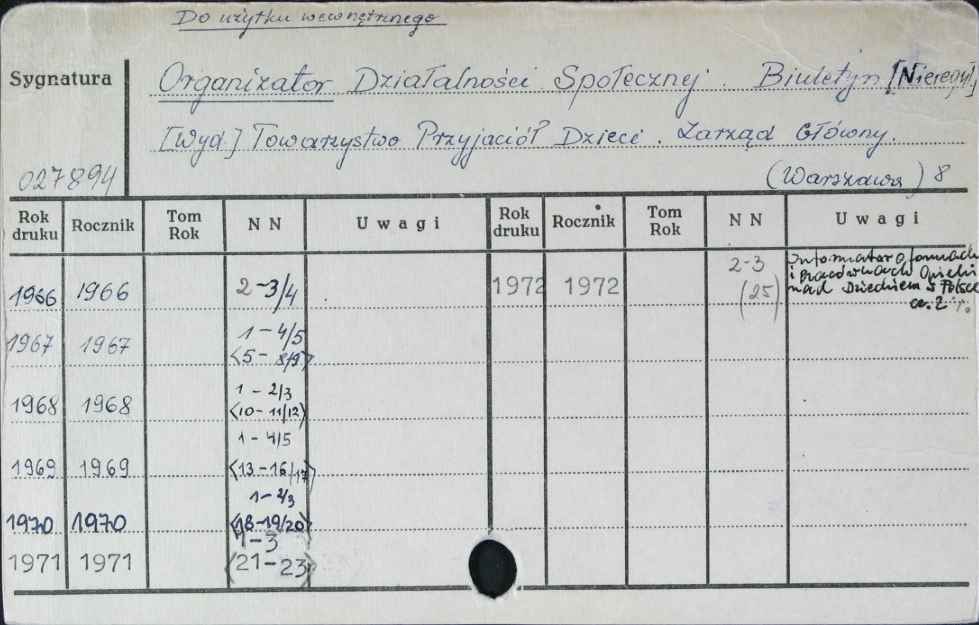 Do użytku wewnętrznego
Sygnatura
Organizator Działalności Społecznej. Biuletyn [Niereg.]
[Wyd.] Towarzystwo Przyjaciół Dzieci. Zarząd Główny.
027894
(Warszawa) 8
Rok druku Rocznik Tom Rok NN Uwagi Rok druku Rocznik Tom Rok NN Uwagi
1966 1966 2-3/4
1972 1972 2-3 (25) Informator o formach
i placówkach opieki
nad Dzieckiem w Polsce
cz. 2
1967 1967 1-4/5
<5-8/9>
1968 1968 1-2/3
<10-11/12>
1969 1969 1-4/5
<13-16/17>
1970 1970 1-2/3
<18-19/20>
1971 1971 1-3
<21-23>